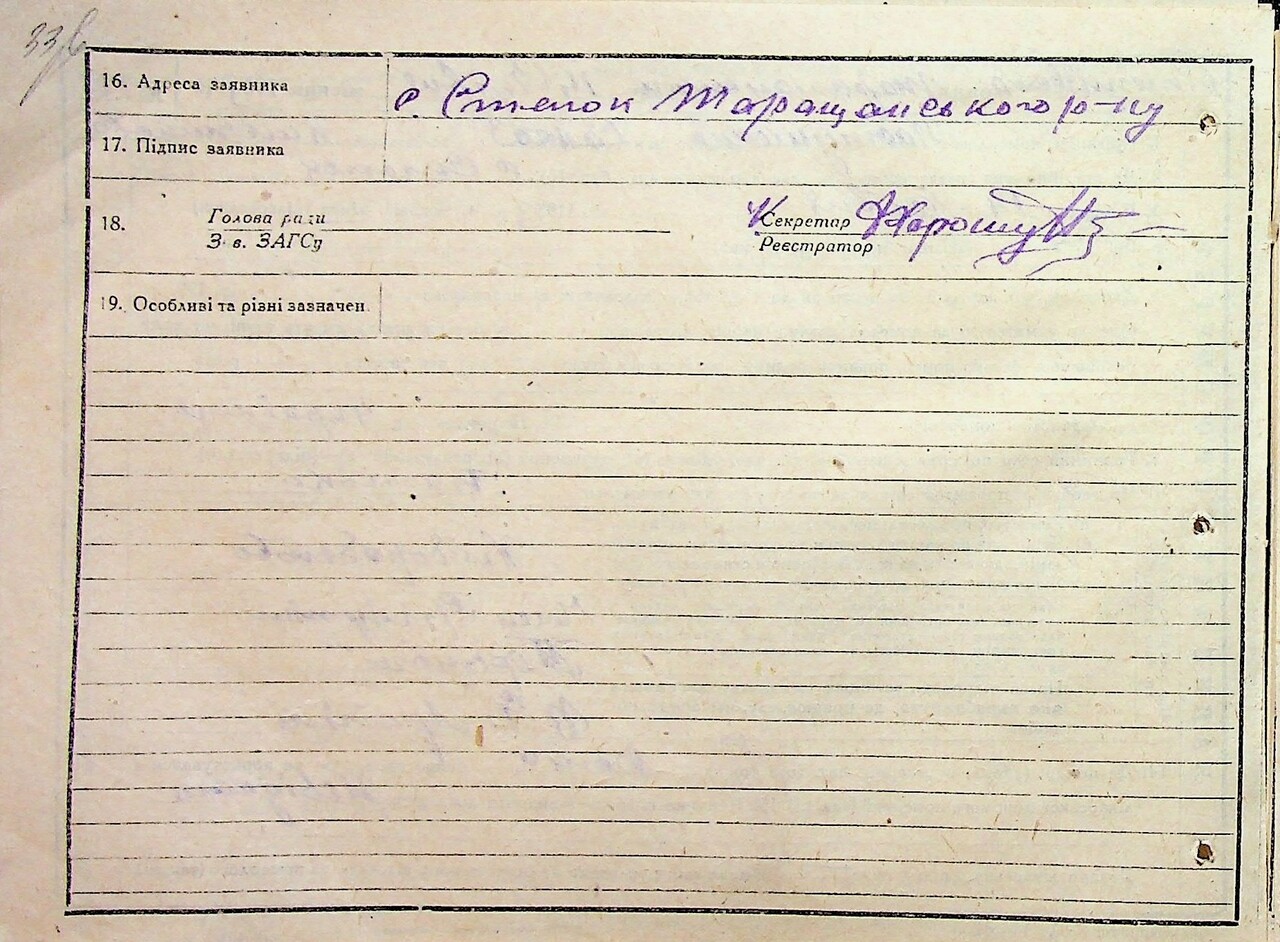 33б
16. Адреса заявника с. Степок Таращанського р-ну
17. Підпис заявника
18. Голова ради Секретар
З в. ЗАГСу Реєстратор
19. Особливі та різні зазначен.